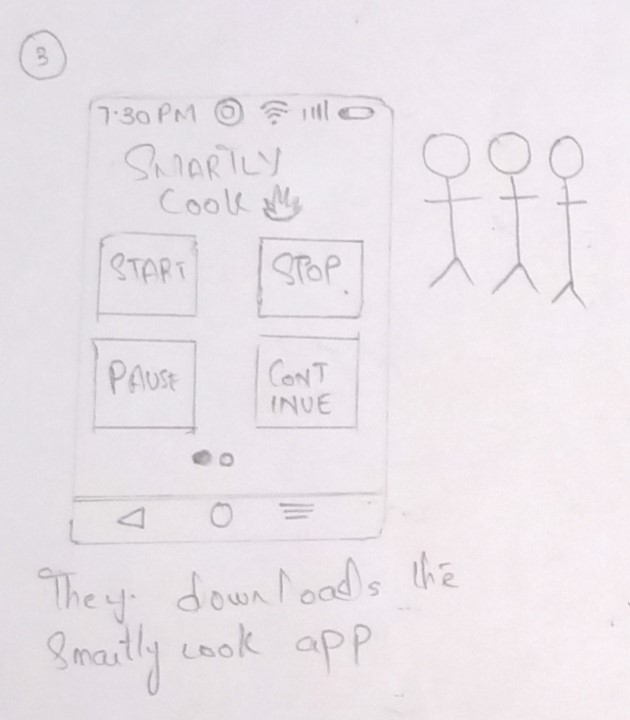 3
7:30 PM
SMARTLY
Cook
START
STOP.
PAUSE
CONT
INUE
They. downloads the
Smartly cook app